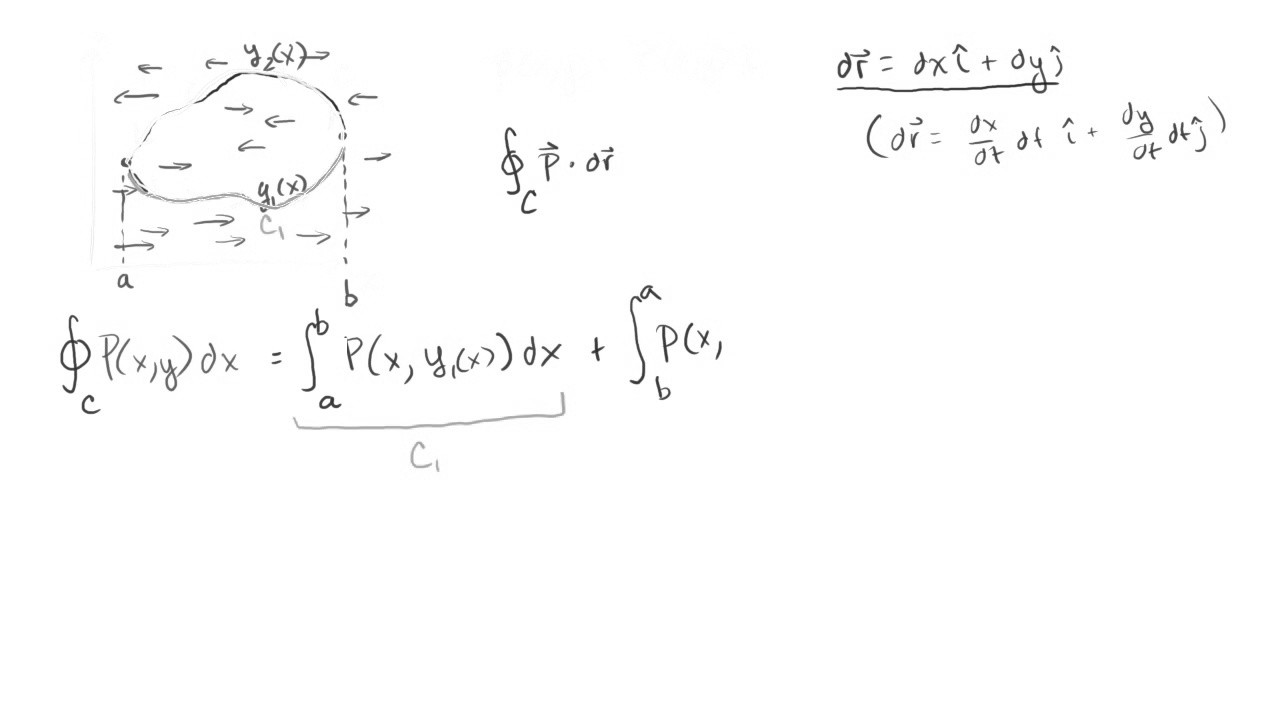 y₂(x)
y₁(x)
C₁
a b
∮_C P⃗ · dr⃗
dr⃗ = dx î + dy ĵ
(dr⃗ = dx/dt dt î + dy/dt dt ĵ)
∮_C P(x,y) dx = ∫_a^b P(x, y₁(x)) dx + ∫_b^a P(x,
C₁